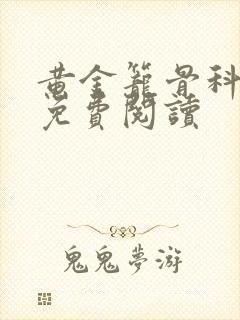 黄金籠骨科
免費閱讀
鬼鬼夢游